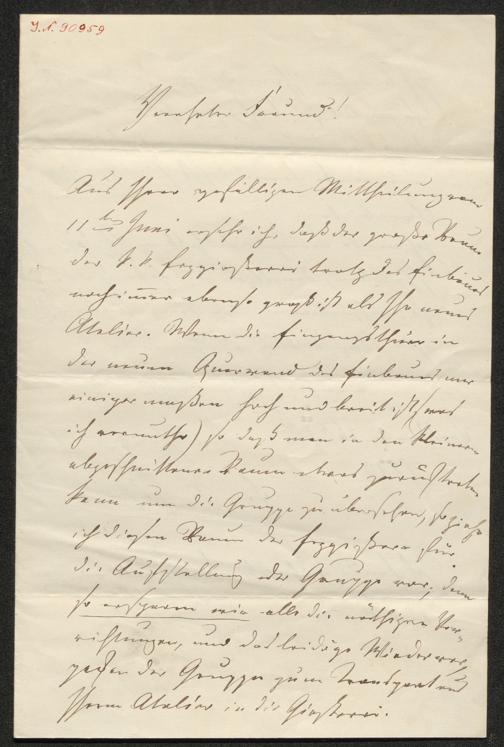 J.N. 90959
Verehrter Freund!
Aus Ihrer gefälligen Mittheilung vom
11ten Juni ersehe ich, daß der große Raum
der k. k. Erzgießerei trotz des Einbaues
noch immer ebenso groß ist als Ihr neues
Atelier. Wenn die Eingangsthüre in
der neuen Querwand des Einbaues nur
einigermaßen hoch und breit ist (was
ich vermuthe) so daß man in den kleinern
abgeschnittenen Raum etwas zurücktreten
kann um die Gruppe zu übersehen, so ziehe
ich diesen Raum der Erzgießerei für
die Aufstellung der Gruppe vor; denn
so ersparen wir alle die nöthigen Vor-
richtungen, und das leidige Wiederver-
packen der Gruppe zum Transport aus
Ihrem Atelier in die Gießerei.